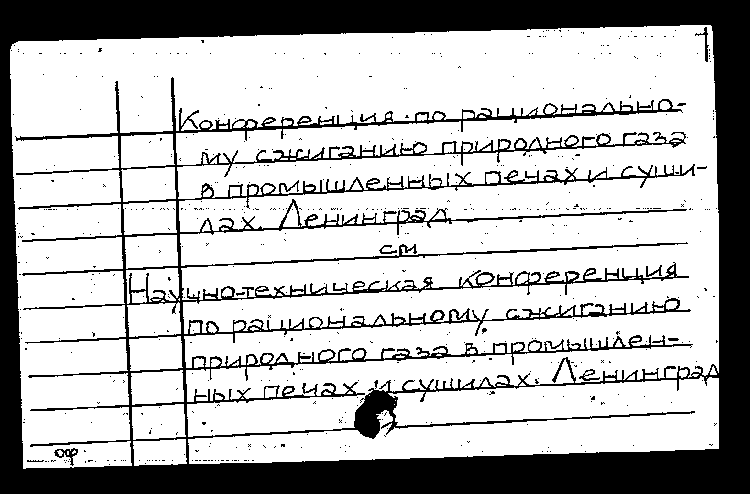 Конференция по рационально-
му сжиганию природного газа
в промышленных печах и суши-
лах. Ленинград
см.
Научно-техническая конференция
по рациональному сжиганию
природного газа в промышлен-
ных печах и сушилах. Ленинград